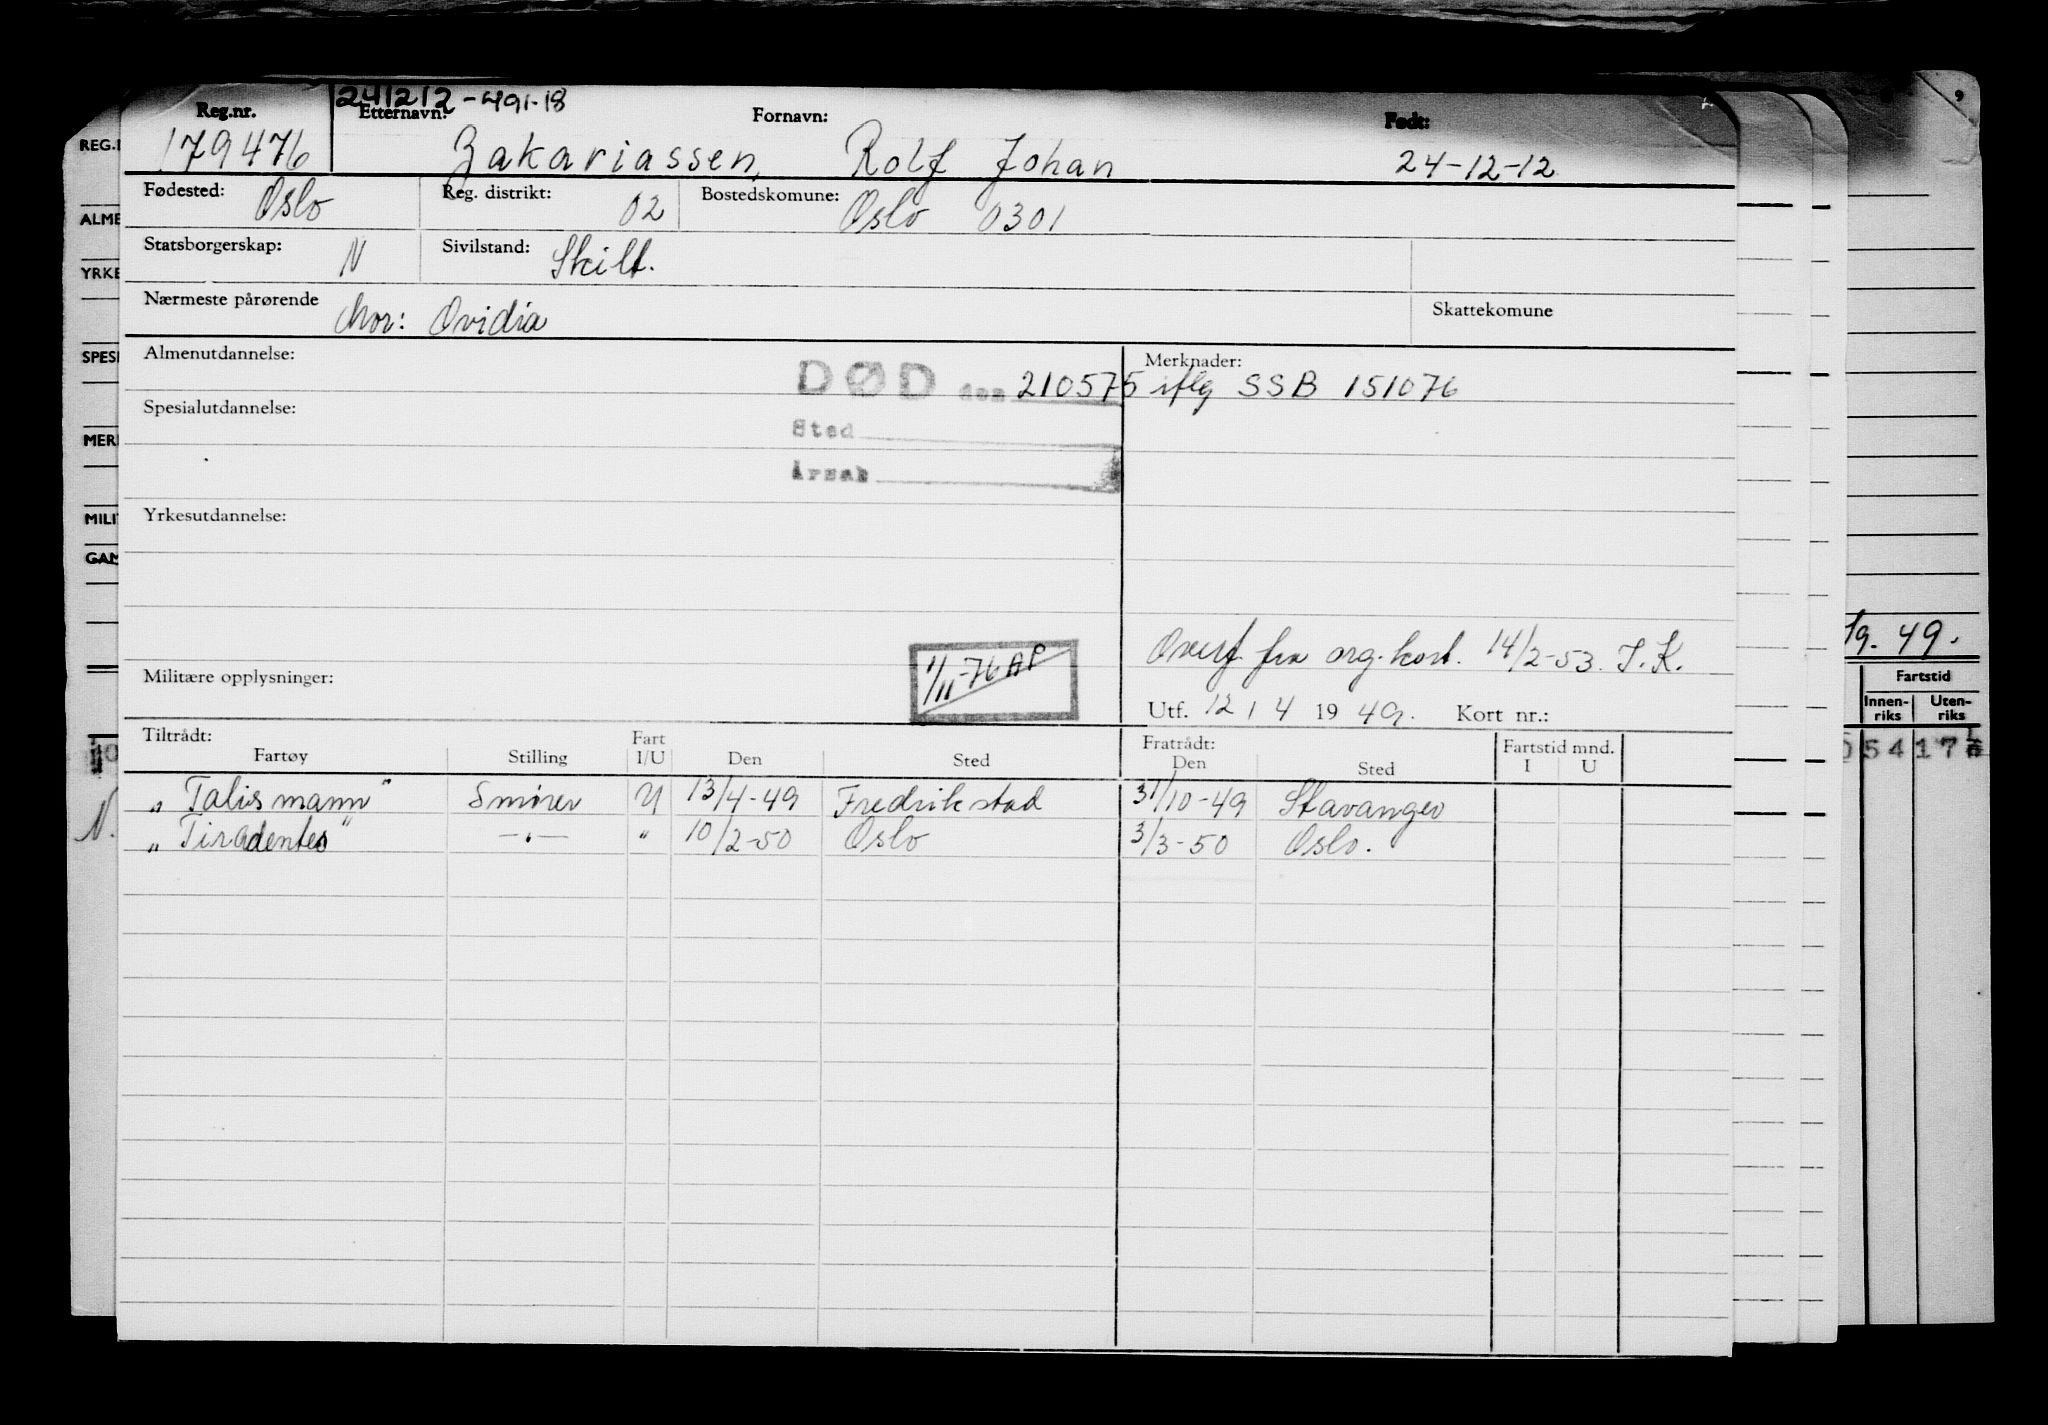 241212-49118
Reg.nr. Etternavn: Fornavn: Født:
179476 Zakariassen, Rolf Johan 24-12-12
Fødested: Oslo Reg. distrikt: 02 Bostedskomune: Oslo 0301
Statsborgerskap: N Sivilstand: Skilt.
Nærmeste pårørende Mor: Ovidia Skattekomune
Almenutdannelse: Merknader:
DØD den 210575 iflg SSB 151076
Spesialutdannelse: Sted
Årsak
Yrkesutdannelse:
Overf. fra org. kort. 14/2-53. I.K.
Militære opplysninger: 1/11-76 AP
Utf. 12 / 4 19 49. Kort nr.:
Tiltrådt: Fratrådt: Fartstid mnd.
Fartøy Stilling Fart I/U Den Sted Den Sted I U
"Talismann" Smører U 13/4-49 Fredrikstad 31/10-49 Stavanger
"Tiradentes" —"— " 10/2-50 Oslo 3/3-50 Oslo.
REG.
ALME
YRKE
SPESI
MER
MILI
GAM
N.
19. 49.
Fartstid
Innen-riks Uten-riks
54 17